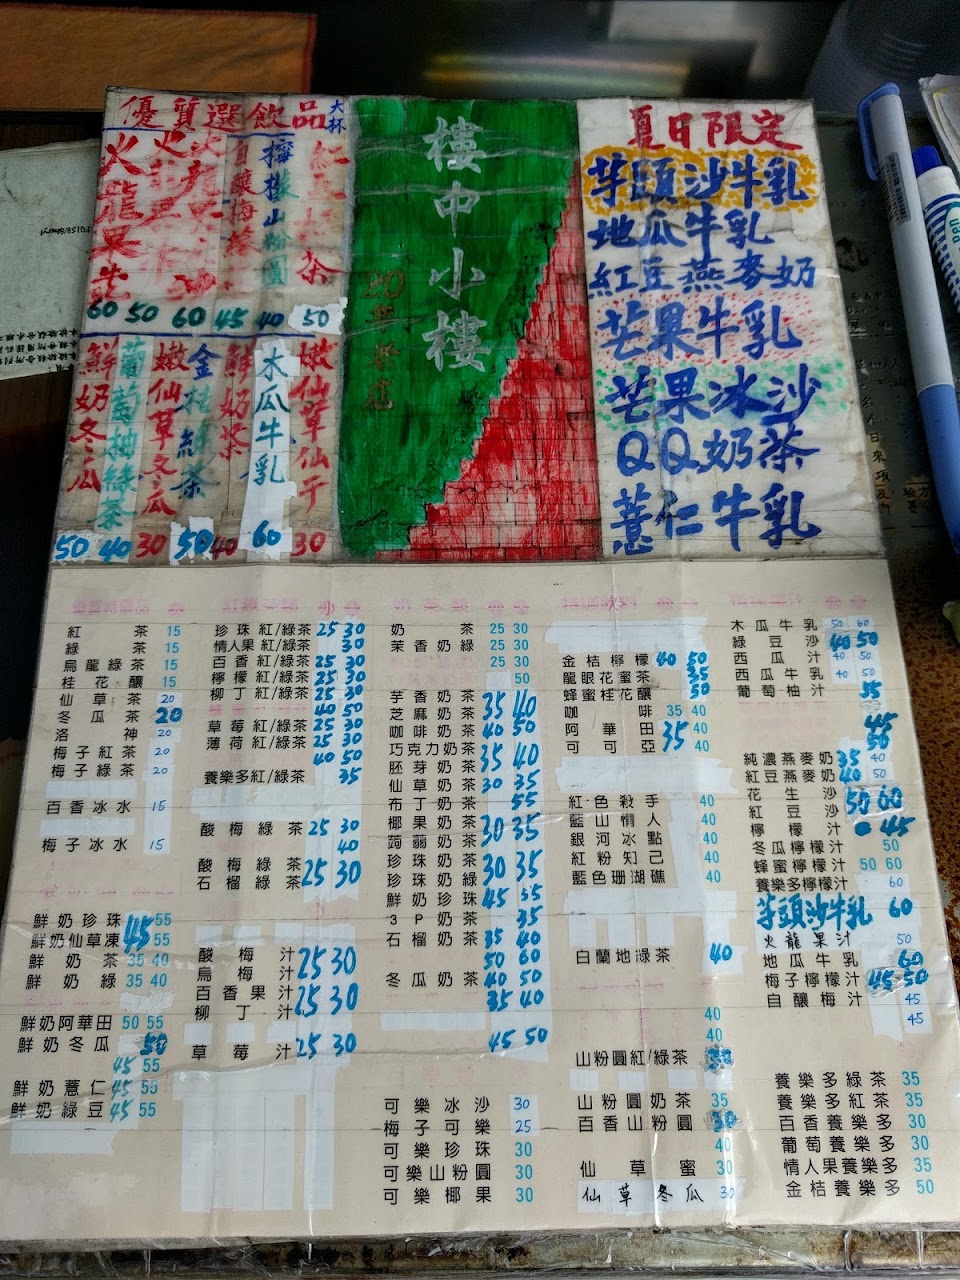 優質選飲品 大杯
火龍果牛
60 50 60 45 40 50
自釀梅茶
檸檬山粉圓
鮮奶冬瓜 50
葡萄柚綠茶 40
嫩仙草冬瓜 30
金桔綠茶 50
鮮奶茶 40
木瓜牛乳 60
嫩仙草仙子 30
樓中小樓
20年老店
夏日限定
芋頭沙牛乳
地瓜牛乳
紅豆燕麥奶
芒果牛乳
芒果冰沙
QQ奶茶
薏仁牛乳
紅茶 15
綠茶 15
烏龍綠茶 15
桂花釀 15
仙草茶 20
冬瓜茶 20
洛神 20
梅子紅茶 20
梅子綠茶 20
百香冰水 15
梅子冰水 15
鮮奶珍珠 45 55
鮮奶仙草凍 45 55
鮮奶茶 35 40
鮮奶綠 35 40
鮮奶阿華田 50 55
鮮奶冬瓜 50
45 55
鮮奶薏仁 45 55
鮮奶綠豆 45 55
珍珠紅/綠茶 25 30
情人果紅/綠茶 30
百香紅/綠茶 25 30
檸檬紅/綠茶 25 30
柳丁紅/綠茶 25 30
40 50
草莓紅/綠茶 25 30
薄荷紅/綠茶 25 30
40 50
養樂多紅/綠茶 35
酸梅綠茶 25 30
40
酸梅綠茶
石榴綠茶 25 30
酸梅汁 25 30
烏梅汁
百香果汁 25 30
柳丁汁
草莓汁 25 30
奶茶 25 30
茉香奶綠 25 30
25 30
50
芋香奶茶 35 40
芝麻奶茶
咖啡奶茶 40 50
巧克力奶茶 35 40
胚芽奶茶
仙草奶茶 30 35
布丁奶茶 55
椰果奶茶 30 35
蒟蒻奶茶
珍珠奶茶 30 35
珍珠奶綠
鮮奶珍珠 45 55
3P奶茶 35
石榴奶茶 35 40
50 60
冬瓜奶茶 40 50
35 40
45 50
可樂冰沙 30
梅子可樂 25
可樂珍珠 30
可樂山粉圓 30
可樂椰果 30
金桔檸檬 40 50
龍眼花蜜茶 35
蜂蜜桂花釀 50
咖啡 35 40
阿華田 35 40
可可亞 40
紅色殺手 40
藍山情人 40
銀河冰點 40
紅粉知己 40
藍色珊瑚礁 40
白蘭地綠茶 40
40
40
山粉圓紅/綠茶 30
山粉圓奶茶 35
百香山粉圓 30
40
仙草蜜 30
仙草冬瓜 30
木瓜牛乳 50 60
綠豆沙 40 50
西瓜汁 40 50
西瓜牛乳 40 50
葡萄柚汁 55
45
50
純濃燕麥奶 35 40
紅豆燕麥奶 40 50
花生沙 50 60
紅豆沙
檸檬汁 45
冬瓜檸檬汁 50
蜂蜜檸檬汁 50 60
養樂多檸檬汁 60
芋頭沙牛乳 60
火龍果汁 50
地瓜牛乳 60
梅子檸檬汁 45 50
自釀梅汁 45
45
養樂多綠茶 35
養樂多紅茶 35
百香養樂多 30
葡萄養樂多 30
情人果養樂多 35
金桔養樂多 50